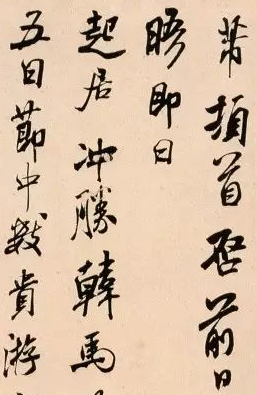 芾頓首啓前日
晤即日
起居冲勝韓馬
五日節中數貴游